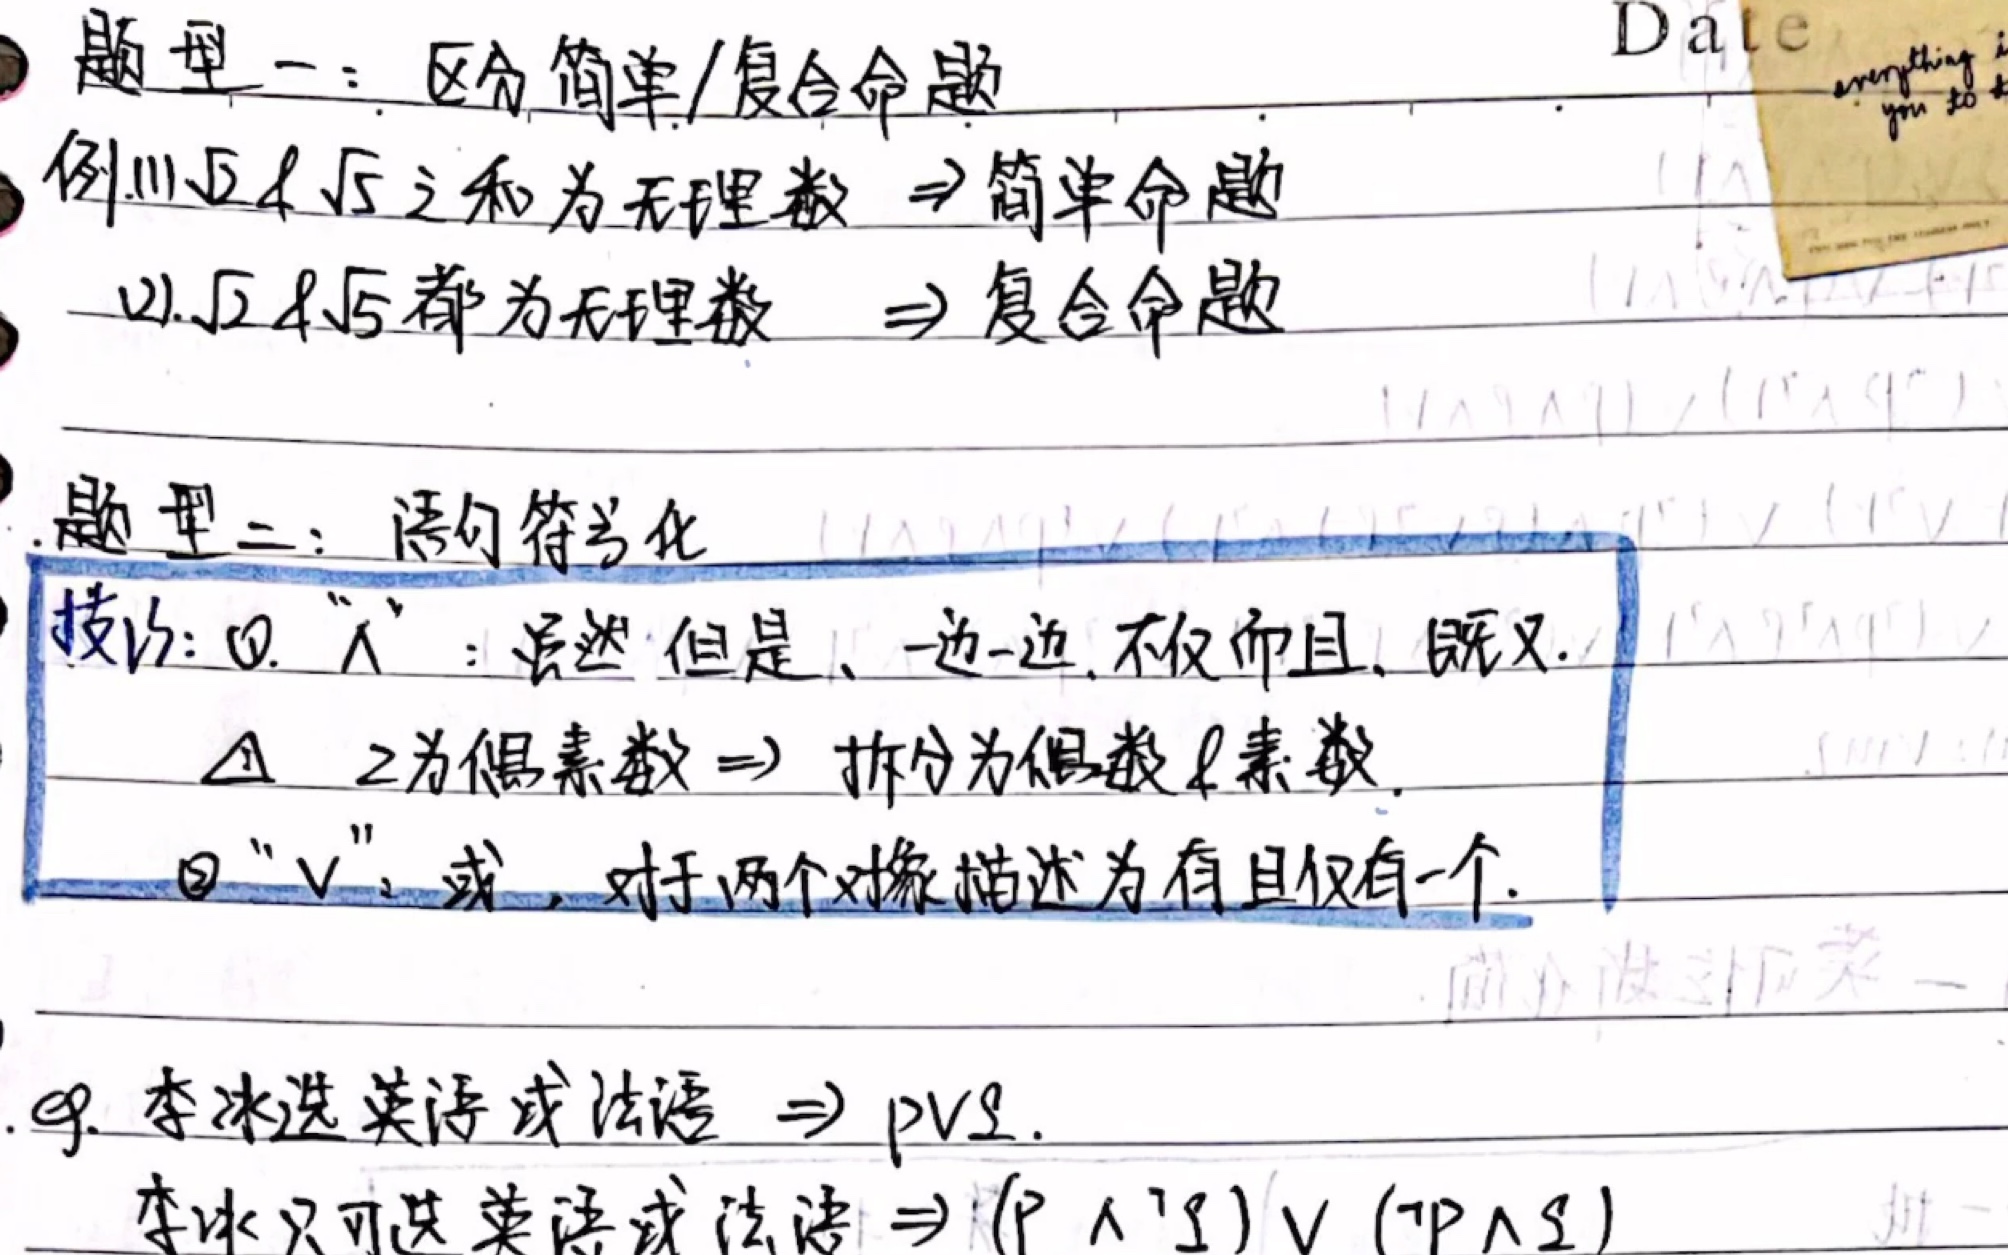 Date
everything i
you to t
题型一：区分简单/复合命题
例.(1)√2 & √5 之和为无理数 ⇒ 简单命题
(2).√2 & √5 都为无理数 ⇒ 复合命题
题型二：语句符号化
技巧：①. “∧”：虽然但是、一边一边、不仅而且、既又.
⚠ 2为偶素数 ⇒ 拆分为偶数 & 素数.
② “∨”：或，对于两个对象描述为有且仅有一个.
eg. 李冰选英语或法语 ⇒ p∨q.
李冰只可选英语或法语 ⇒ (p ∧ ¬q) ∨ (¬p ∧ q)